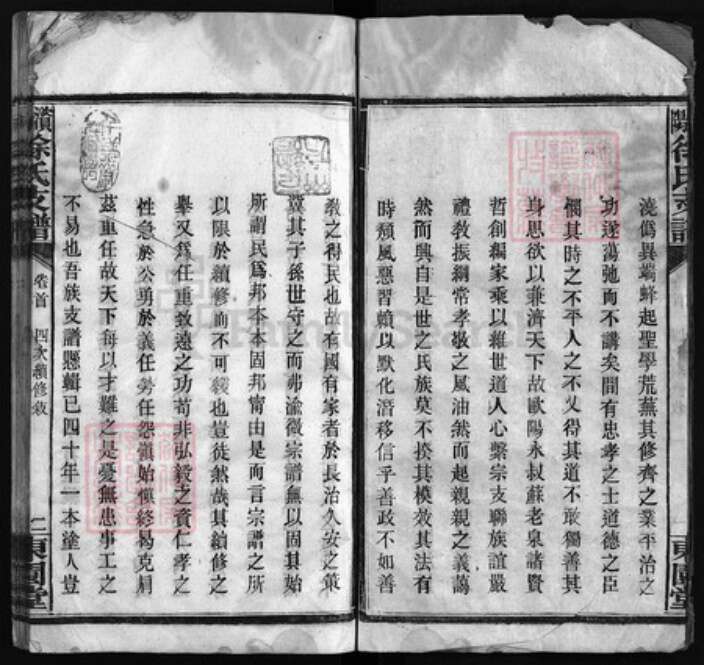 澆僞異端蜂起聖學荒蕪其修齊之業平治之
功遂蕩弛而不講矣間有忠孝之士道德之臣
憫其時之不平人之不乂得其道不敢獨善其
身思欲以兼濟天下故歐陽永叔蘇老泉諸賢
哲創編家乘以維世道人心繫宗支聯族誼嚴
禮教振綱常孝敬之風油然而起親親之義藹
然而興自是世之氏族莫不揆其模效其法有
時頽風惡習賴以默化潛移信乎善政不如善
教之得民也故有國有家者於長治久安之策
冀其子孫世守之而弗渝微宗譜無以固其始
所謂民爲邦本本固邦甯由是而言宗譜之所
以限於續修而不可緩也豈徒然哉其續修之
舉又爲任重致遠之功苟非弘毅之資仁孝之
性急於公勇於義任勞任怨嶺始愼終曷克肩
茲重任故天下每以才難之是憂無患事工之
不易也吾族支譜懸輯已四十年一本塗人豈
徐氏支譜
卷首
四次續修敘
二
東園堂
FamilySearch